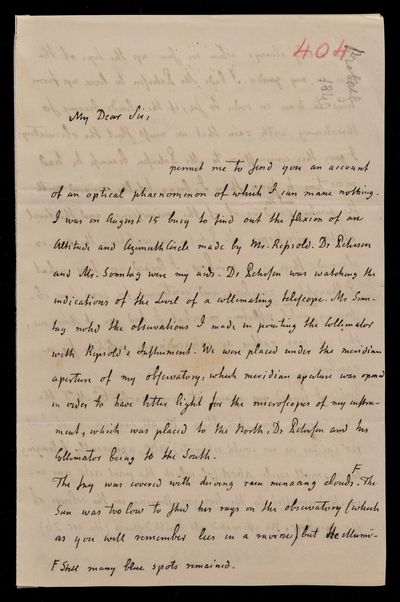 404
My Dear Sir,
permet me to send you an account
of an optical phaenomenon of which I can make nothing.
I was on August 15 busy to find out the flexion of an
Altitude and Azimuth Circle made by Mr. Repsold. Dr Petersen
and Mr. Sonntag were my aids. Dr Petersen was watching the
indications of the Level of a collimating telescope. Mr Sonn-
tag noted the observations I made in pointing the Collimator
with Repsold's Instrument. We were placed under the meridian
aperture of my observatory, which meridian aperture was opened
in order to have better light for the microscopes of my instru-
ment, which was placed to the North, Dr Petersen and his
Collimator being to the South.
The sky was covered with driving rain menacing clouds F. The
Sun was too low to shed his rays on the observatory (which
as you will remember lies in a ravine) but He illumi-
F Still many blue spots remained.